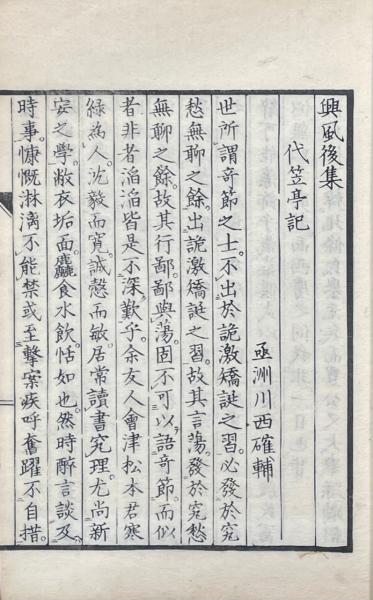 興風後集
代笠亭記
亟洲川西確輔
世所謂奇節之士。不出於詭激矯誕之習。必發於窮
愁無聊之餘。出詭激矯誕之習。故其言蕩。發於窮愁
無聊之餘。故其行鄙。鄙與蕩。固不可以語奇節。而似
者非者滔滔皆是。不深歎乎。余友人會津松本君寒
綠為人。沈毅而寬。誠愨而敏。居常讀書究理。尤尚新
安之學。敝衣垢面。麤食水飲。恬如也。然時醉言談及
時事。慷慨淋漓不能禁。或至擊案疾呼奮躍不自措。